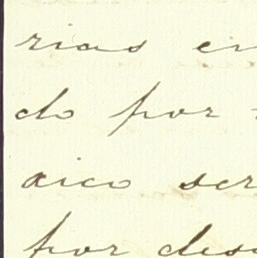 rias en
do por
aico ser
por des